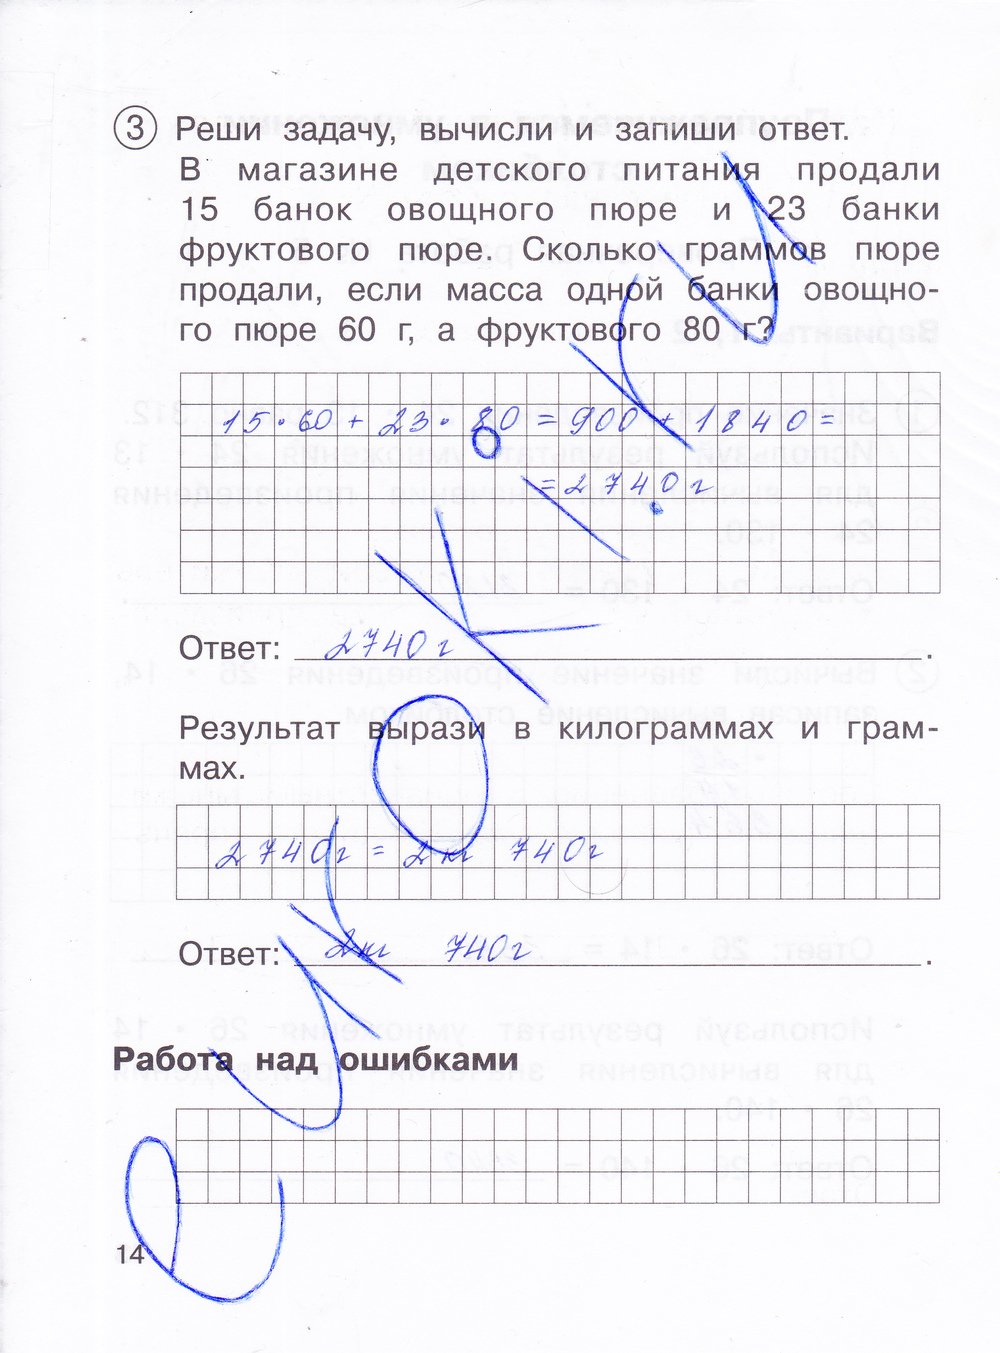 3 Реши задачу, вычисли и запиши ответ.
В магазине детского питания продали
15 банок овощного пюре и 23 банки
фруктового пюре. Сколько граммов пюре
продали, если масса одной банки овощно-
го пюре 60 г, а фруктового 80 г?
15 · 60 + 23 · 80 = 900 + 1840 =
= 2740 г
Ответ: 2740 г.
Результат вырази в килограммах и грам-
мах.
2740г = 2кг 740г
Ответ: 2кг 740г.
Работа над ошибками
14